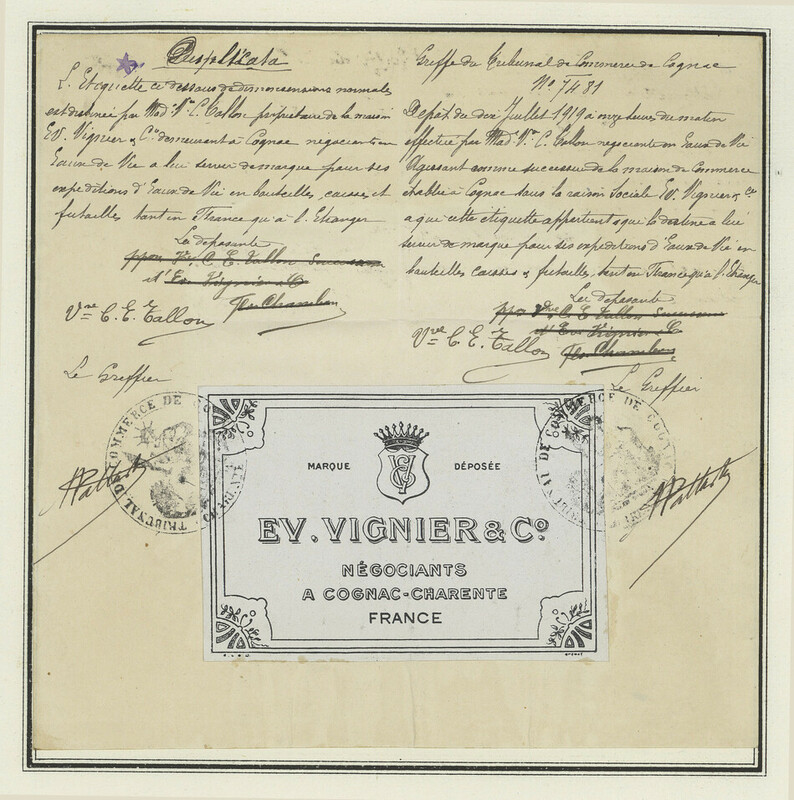 Duplicata
L'Etiquette ci dessous de dimensions normales
est destinée par Mad. Vve C. Tallon propriétaire de la maison
Ev. Vignier & Cie demeurant à Cognac négociante en
Eaux de Vie à lui servir de marque pour ses
expéditions d'Eaux de Vie en bouteilles, caisses et
futailles tant en France qu'à l'Etranger
La déposante
ppon Vve C. E. Tallon Successeur
d'Ev. Vignier & C
Chambon
Vve C. E. Tallon
Le Greffier
Greffe du Tribunal de Commerce de Cognac
No 7481
Dépôt du dix Juillet 1919 à onze heures du matin
effectué par Mad. Vve C. Tallon négociante en Eaux de Vie
Agissant comme successeur de la maison de Commerce
établie à Cognac sous la raison Sociale Ev. Vignier & Cie
à qui cette étiquette appartient & qui la destine à lui
servir de marque pour ses expéditions d'Eaux de Vie en
bouteilles caisses & futailles, tant en France qu'à l'Etranger
La déposante
ppon Vve C. E. Tallon Successeur
d'Ev. Vignier & C
Chambon
Vve C. E. Tallon
Le Greffier
TRIBUNAL DE COMMERCE DE CO
TRIBUNAL DE COMMERCE DE COGNAC
MARQUE DÉPOSÉE
EV. VIGNIER & Co
NÉGOCIANTS
A COGNAC-CHARENTE
FRANCE